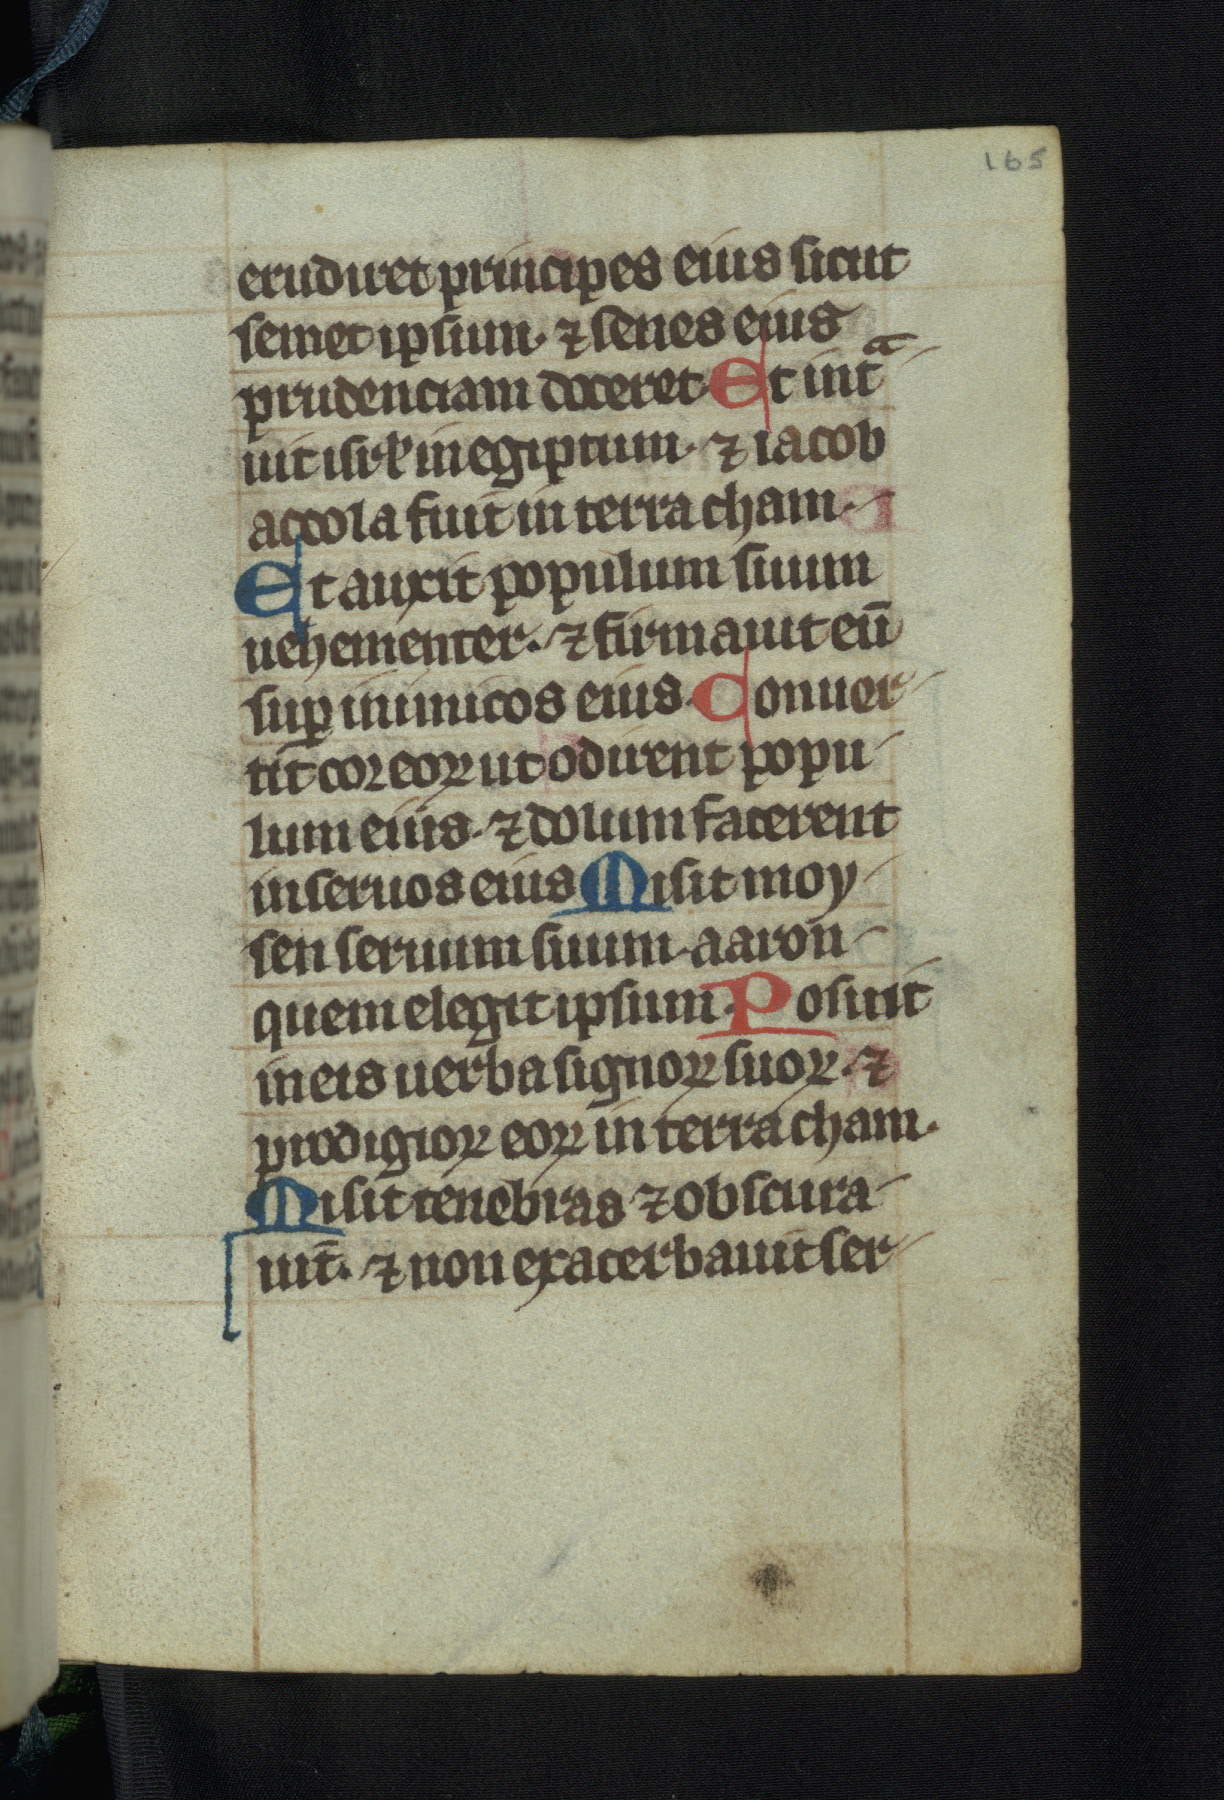 165
erudiret principes eius sicut
semet ipsum. ⁊ senes eius
prudenciam doceret Et intͣ
uit isrl̓ in egiptum. ⁊ iacob
accola fuit in terra cham.
Et auxit populum suum
uehementer. ⁊ firmauit eū
suꝑ inimicos eius. Conuer
tit cor eoꝝ ut odirent popu
lum eius. ⁊ dolum facerent
in seruos eius Misit moy
sen seruum suum. aaron
quem elegit ipsum. Posuit
in eis uerba signoꝝ suoꝝ. ⁊
prodigioꝝ eoꝝ in terra cham.
Misit tenebras ⁊ obscura
uit. ⁊ non exacerbauit ser